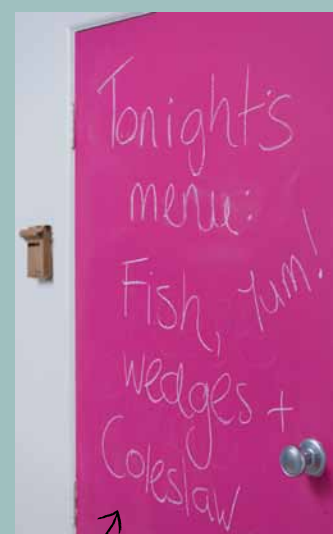 Tonight's
menu:
Fish, yum!
wedges +
Coleslaw